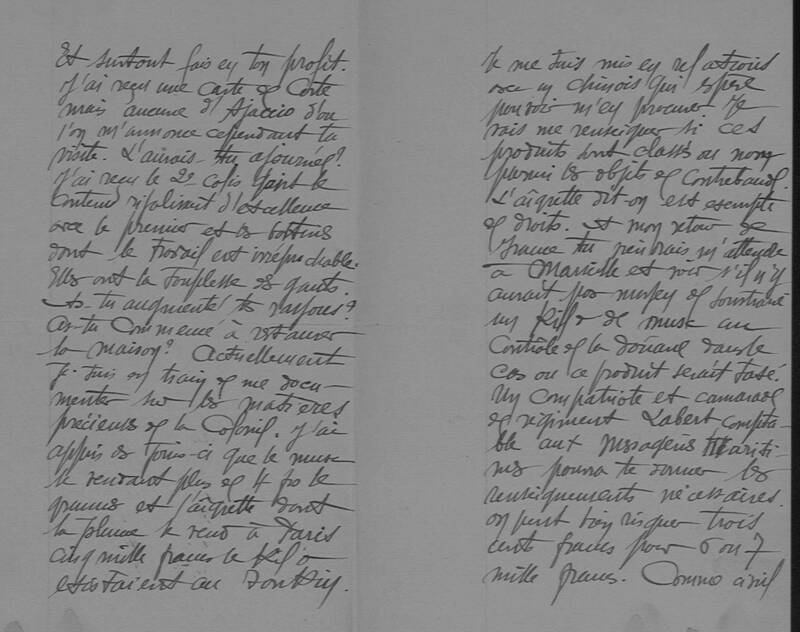 Et surtout fais en ton profit.
J'ai reçu une Carte de Corte
mais aucune d'Ajaccio d'ou
l'on m'annonce cependant ta
visite. L'aurais-tu ajournée?
J'ai reçu le 2e Colis dont le
Contenu rivalisait d'excellence
avec le premier et les bottines
dont le travail est irréprochable.
Elles ont la souplesse de gants.
As-tu augmenté tes rayons?
As-tu Commencé à restaurer
la maison? Actuellement
Je suis en train de me docu-
menter sur les matières
précieuses de la Colonie. J'ai
appris ces jours-ci que le musc
se vendant plus de 4 frs le
gramme et l'aigrette dont
la plume se vend à Paris
cinq mille francs le Kilo
existaient au Tonkin.
Je me suis mis en relations
avec un chinois qui espère
pouvoir m'en procurer. Je
vais me renseigner si ces
produits sont classés ou non
parmi les objets de Contrebande.
L'aigrette dit-on est exempte
de droits. A mon retour de
France tu viendrais m'attendre
à Marseille et voir s'il n'y
aurait pas moyen de soustraire
un Kilo de musc au
Contrôle de la douane dans le
cas ou ce produit serait taxé.
Un Compatriote et camarade
de régiment Labert compta-
ble aux Messageries Mariti-
mes pourra te donner les
renseignements nécessaires.
on peut bien risquer trois
cents francs pour 6 ou 7
mille francs. Comme civil